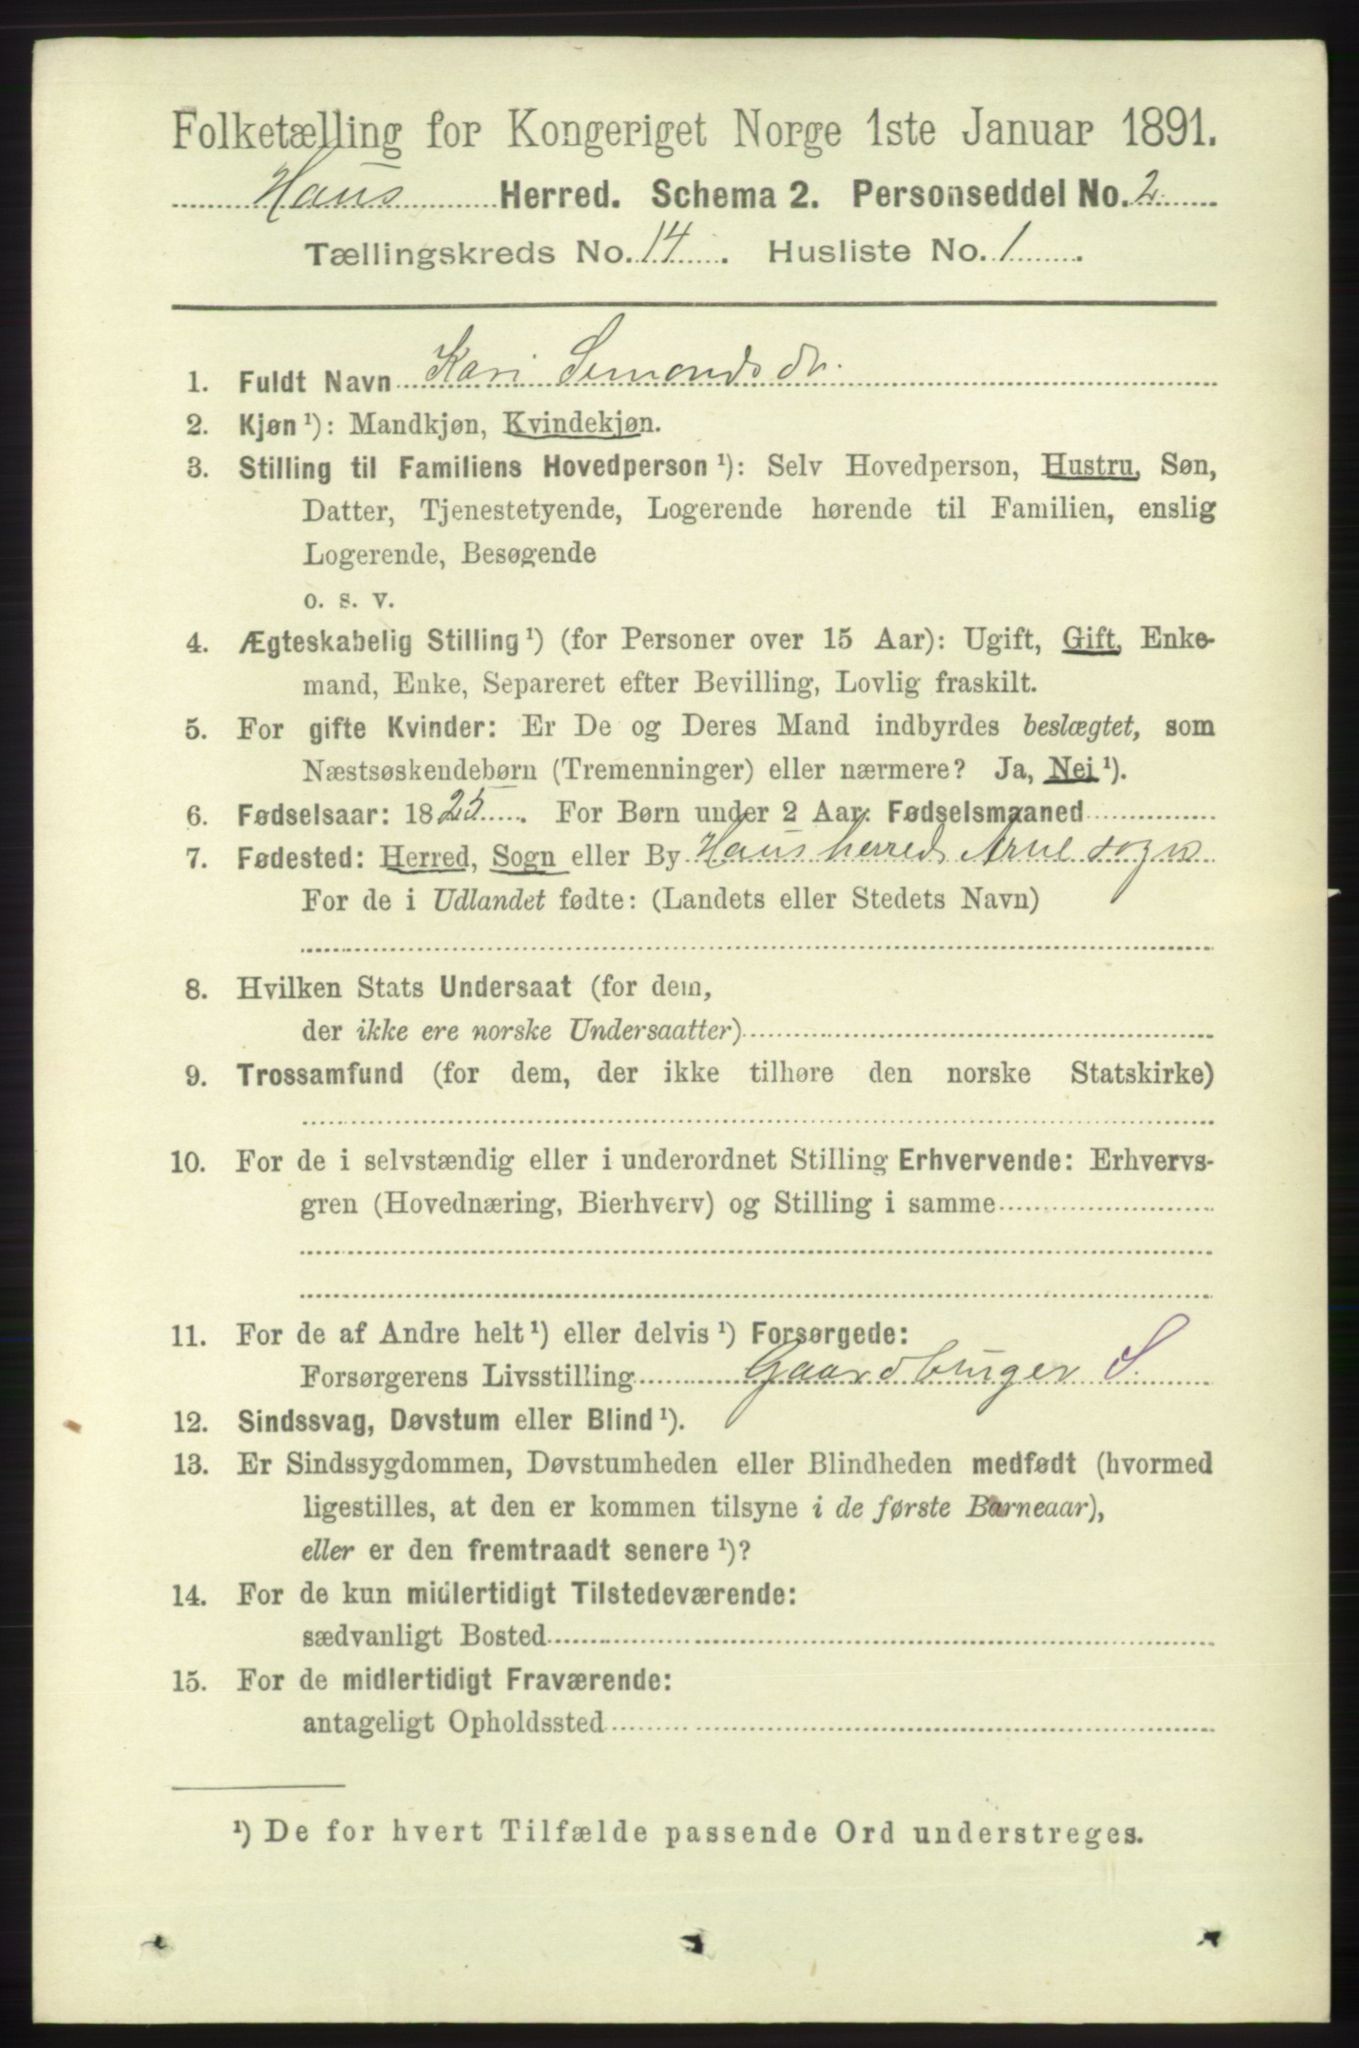 Folketælling for Kongeriget Norge 1ste Januar 1891.
Haus Herred. Schema 2. Personseddel No. 2
Tællingskreds No. 14. Husliste No. 1.
1. Fuldt Navn Kari Simonds dr.
2. Kjøn¹): Mandkjøn, Kvindekjøn.
3. Stilling til Familiens Hovedperson¹): Selv Hovedperson, Hustru, Søn,
Datter, Tjenestetyende, Logerende hørende til Familien, enslig
Logerende, Besøgende
o. s. v.
4. Ægteskabelig Stilling¹) (for Personer over 15 Aar): Ugift, Gift, Enke-
mand, Enke, Separeret efter Bevilling, Lovlig fraskilt.
5. For gifte Kvinder: Er De og Deres Mand indbyrdes beslægtet, som
Næstsøskendebørn (Tremenninger) eller nærmere? Ja, Nei¹).
6. Fødselsaar: 1825. For Børn under 2 Aar: Fødselsmaaned
7. Fødested: Herred, Sogn eller By Haus herred Arne sogn
For de i Udlandet fødte: (Landets eller Stedets Navn)
8. Hvilken Stats Undersaat (for dem,
der ikke ere norske Undersaatter)
9. Trossamfund (for dem, der ikke tilhøre den norske Statskirke)
10. For de i selvstændig eller i underordnet Stilling Erhvervende: Erhvervs-
gren (Hovednæring, Bierhverv) og Stilling i samme
11. For de af Andre helt¹) eller delvis¹) Forsørgede:
Forsørgerens Livsstilling Gaardbruger S.
12. Sindssvag, Døvstum eller Blind¹).
13. Er Sindssygdommen, Døvstumheden eller Blindheden medfødt (hvormed
ligestilles, at den er kommen tilsyne i de første Barneaar),
eller er den fremtraadt senere¹)?
14. For de kun midlertidigt Tilstedeværende:
sædvanligt Bosted
15. For de midlertidigt Fraværende:
antageligt Opholdssted
¹) De for hvert Tilfælde passende Ord understreges.